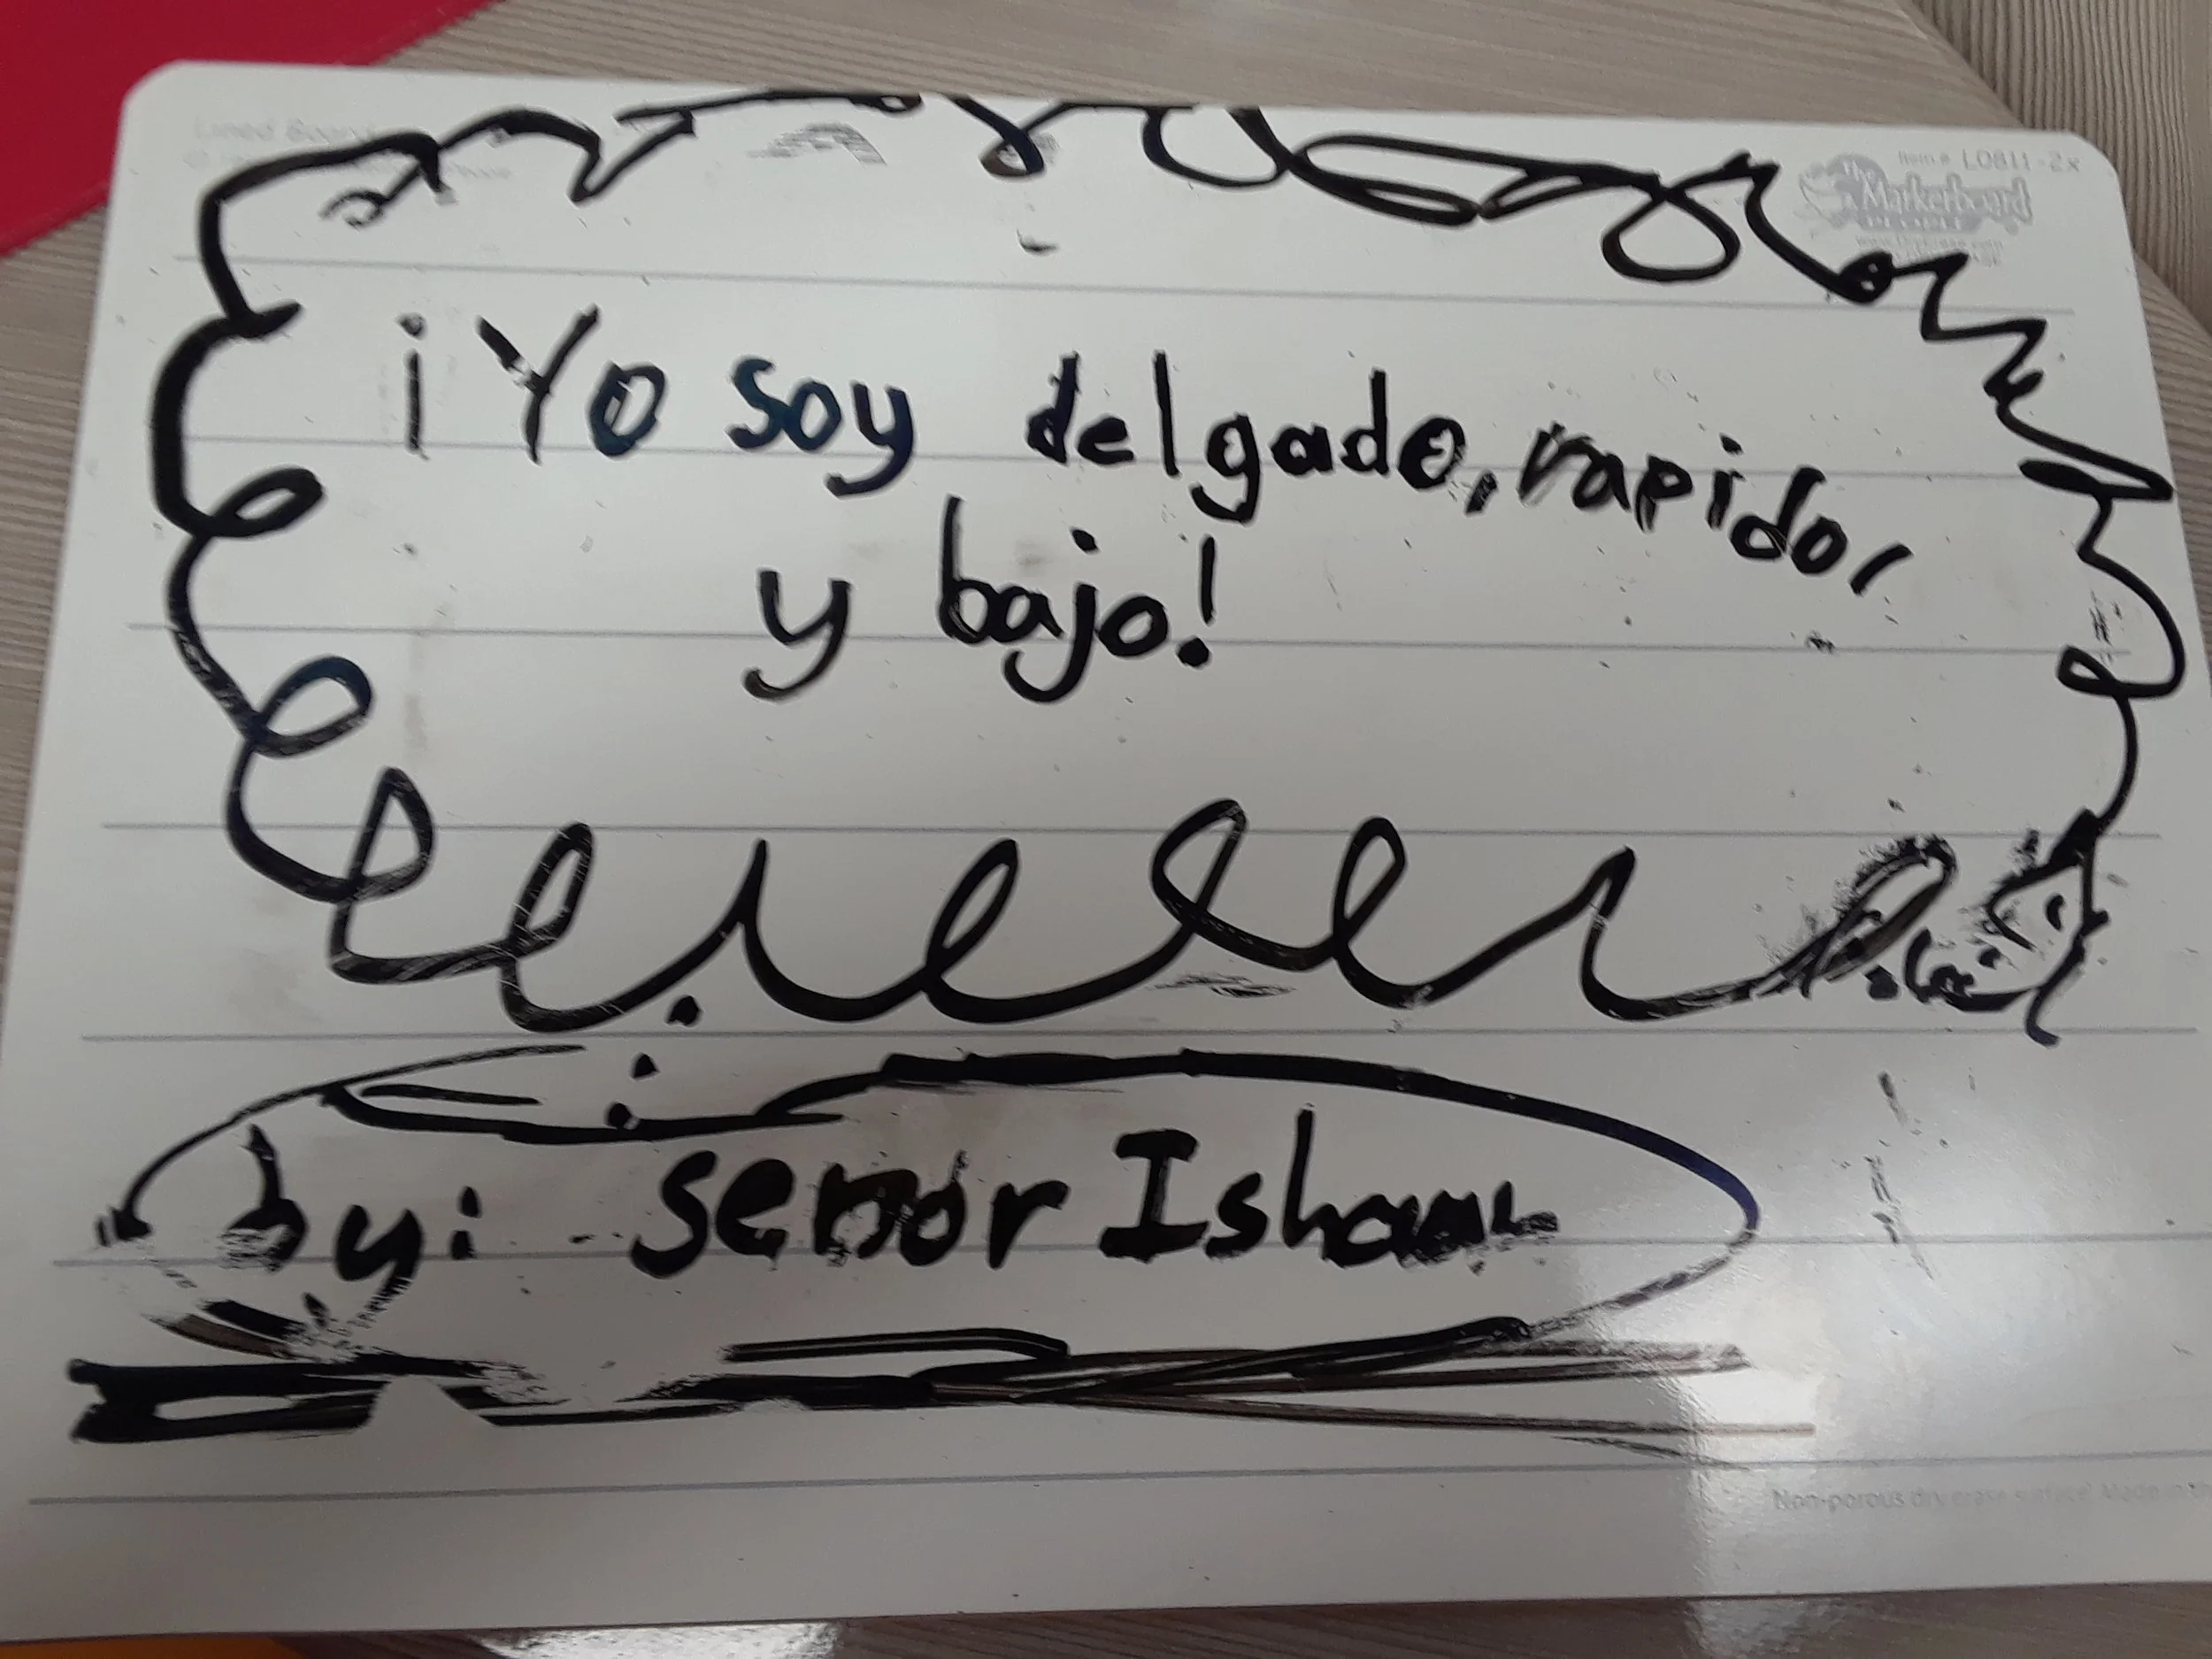 Lined Board
Item# L0811-2x
The
Markerboard
¡Yo soy delgado, rapido,
y bajo!
by: senor Ishaan
Non-porous dry erase surface Made in th